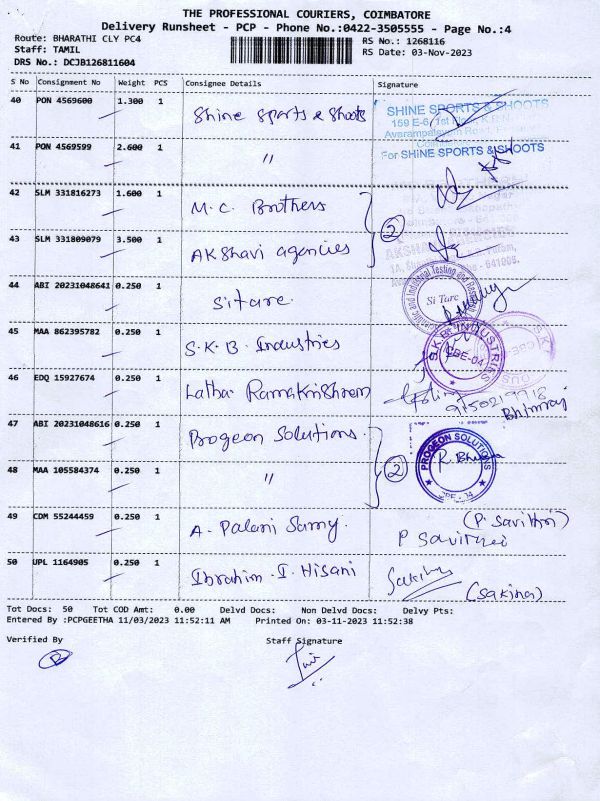 THE PROFESSIONAL COURIERS, COIMBATORE
Delivery Runsheet - PCP - Phone No.:0422-3505555 - Page No.:4
Route: BHARATHI CLY PC4
RS No.: 1268116
Staff: TAMIL
RS Date: 03-Nov-2023
DRS No.: DCJB126811604
S No Consignment No Weight PCS Consignee Details Signature
40 PON 4569600 1.300 1 Shine Sports & Shoots
SHINE SPORTS & SHOOTS
159 E-6, 1st
Avarampalayam Road,
41 PON 4569599 2.600 1 "
For SHINE SPORTS & SHOOTS
42 SLM 331816273 1.600 1 M.C. Brothers
2
43 SLM 331809079 3.500 1 Akshavi agencies
44 ABI 20231048641 0.250 1 Sitarc.
Si Tarc
45 MAA 862395782 0.250 1 S.K.B. Industries
S.K.B. INDUSTRIES
CBE-04
46 EDQ 15927674 0.250 1 Latha Ramakrishnan
Bhimraj
47 ABI 20231048616 0.250 1 Progeon Solutions.
2
PROGEON SOLUTIONS
CBE - 04
48 MAA 105584374 0.250 1 "
49 CDM 55244459 0.250 1 A. Palani Samy.
(P. Savithri)
P Savithri
50 UPL 1164905 0.250 1 Ibrahim. I. Hisani
Sakina
(Sakina)
Tot Docs: 50 Tot COD Amt: 0.00 Delvd Docs: Non Delvd Docs: Delvy Pts:
Entered By :PCPGEETHA 11/03/2023 11:52:11 AM Printed On: 03-11-2023 11:52:38
Verified By Staff Signature